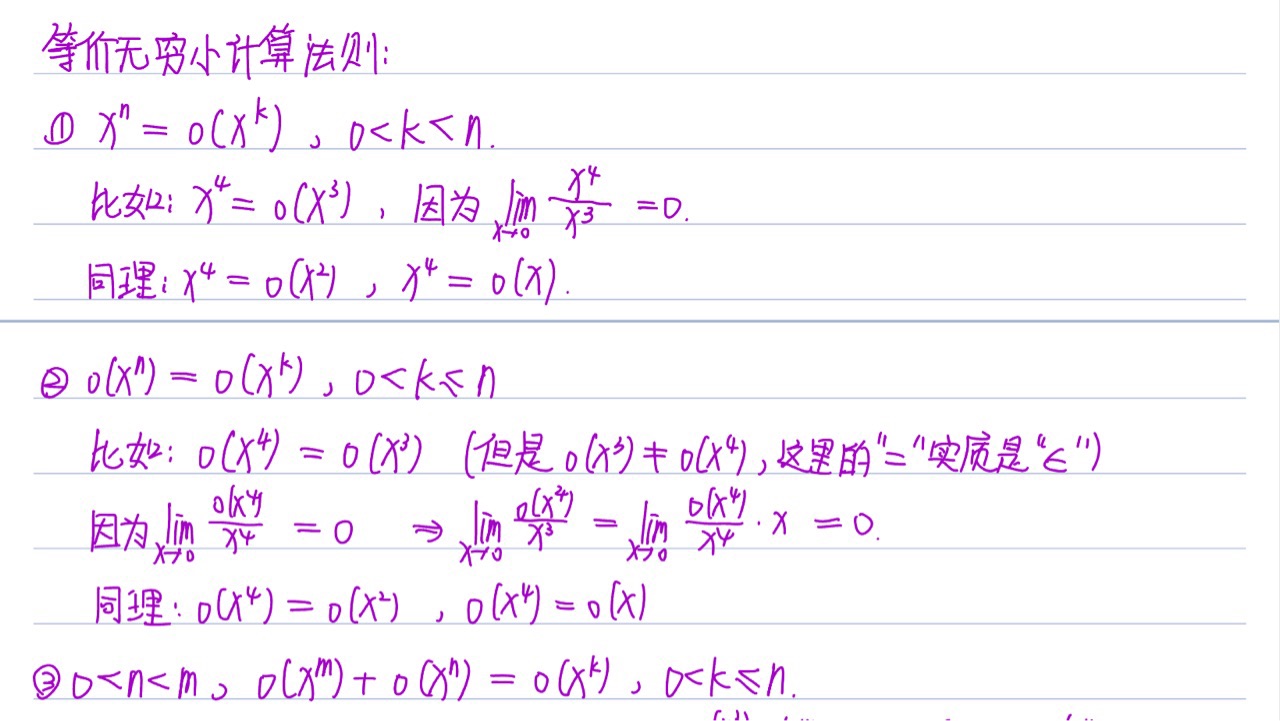 等价无穷小计算法则:
① xⁿ = o(xᵏ) , 0<k<n.
比如: x⁴ = o(x³) , 因为 lim_{x→0} x⁴/x³ = 0.
同理: x⁴ = o(x²) , x⁴ = o(x).
② o(xⁿ) = o(xᵏ) , 0<k≤n
比如: o(x⁴) = o(x³) (但是 o(x³) ≠ o(x⁴), 这里的"="实质是"∈")
因为 lim_{x→0} o(x⁴)/x⁴ = 0 ⇒ lim_{x→0} o(x⁴)/x³ = lim_{x→0} o(x⁴)/x⁴ · x = 0.
同理: o(x⁴) = o(x²) , o(x⁴) = o(x)
③ 0<n<m, o(xᵐ) + o(xⁿ) = o(xᵏ) , 0<k≤n.